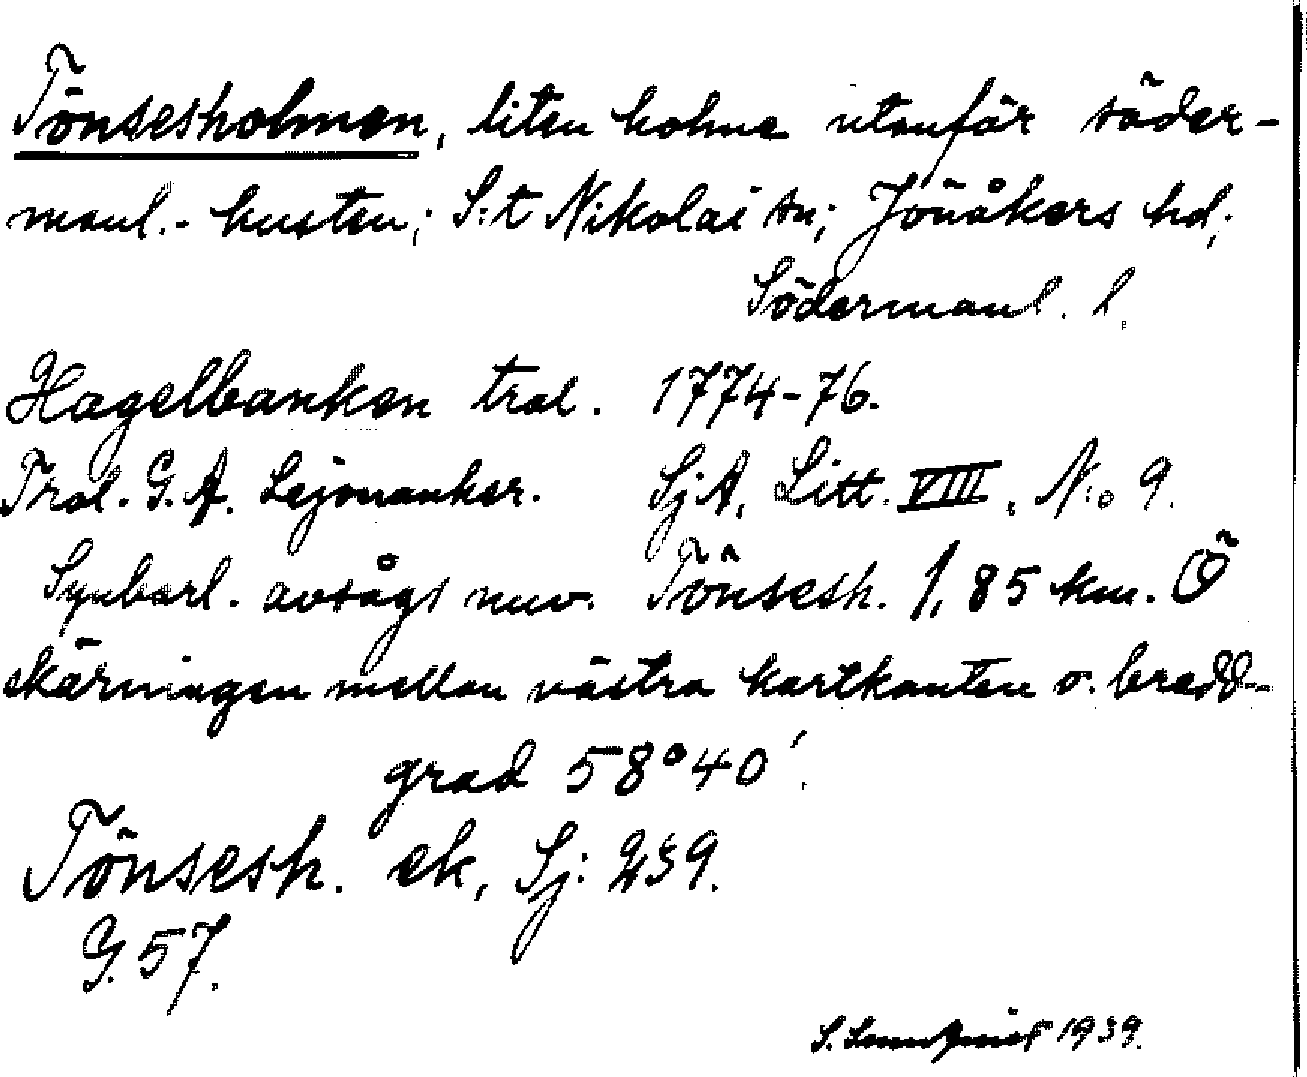 Tönsesholmen, liten holme utanför söder-
manl.- kusten; S:t Nikolai sn; Jönåkers hd;
Södermanl. l.
Hagelbanken tral. 1774-76.
Tral. G. A. Lejonanker. SjA, Litt. VIII, N:o 9.
Synbarl. avsågs nuv. Tönsesh. 1,85 km. Ö
skärningen mellan västra kartkanten o. bredd-
grad 58°40'.
Tönsesh. ek, Sj: 239.
G. 57.
S. 1939.